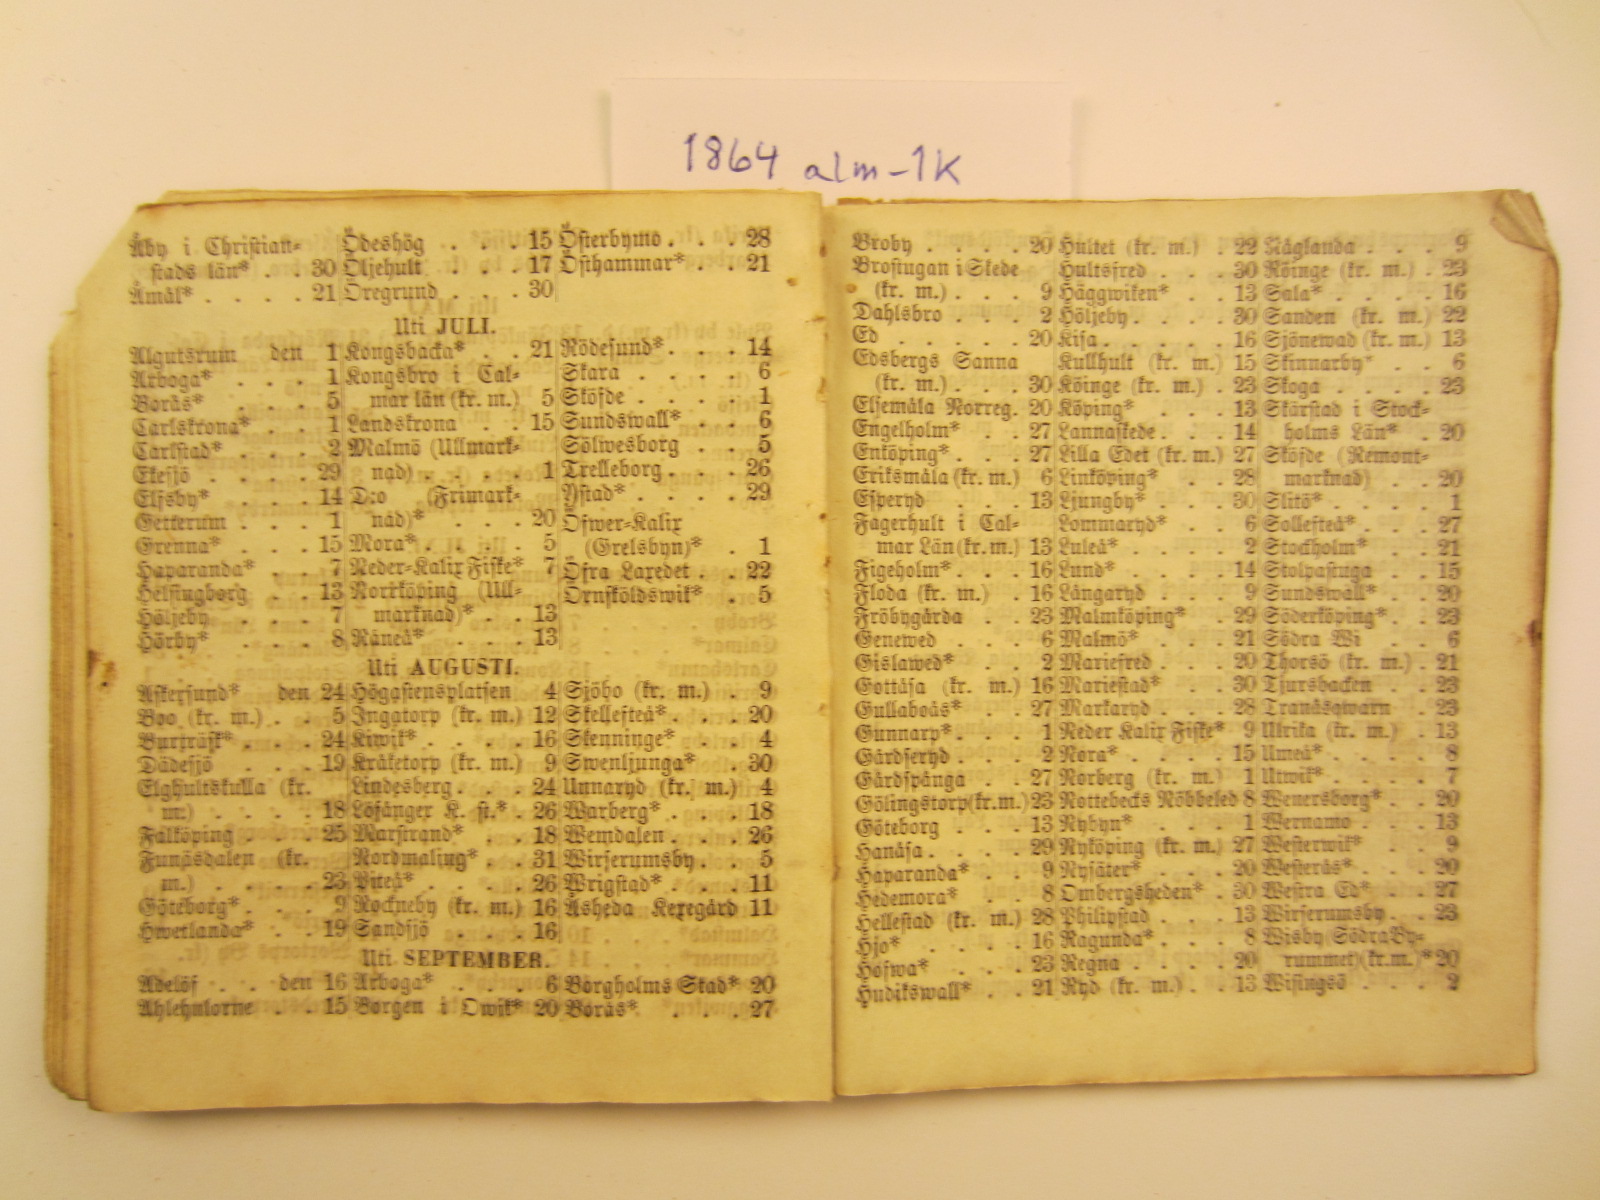 1864 alm-1K
Åby i Christian-
stads län* . . 30
Åmål* . . . . 21
Ödeshög . . . 15
Öljehult . . . 17
Öregrund . . . 30
Österbymo . . . 28
Östhammar* . . 21
Uti JULI.
Algutsrum den 1
Arboga* . . . 1
Borås* . . . 5
Carlskrona* . . 1
Carlstad* . . 2
Eksjö . . . . 29
Elfsby* . . . 14
Getterum . . . 1
Grenna* . . . 15
Haparanda* . . 7
Helsingborg . . 13
Höljeby . . . 7
Hörby* . . . 8
Kongsbacka* . . 21
Kongsbro i Cal-
mar län (kr. m.) 5
Landskrona . . 15
Malmö (Ullmark-
nad) . . . . 1
D:o (Frimark-
nad)* . . . 20
Mora* . . . . 5
Neder-Kalix Fiske* 7
Norrköping (Ull-
marknad)* . . 13
Råneå* . . . 13
Rödesund* . . . 14
Skara . . . . 6
Stöfde . . . . 1
Sundswall* . . 6
Sölwesborg . . 5
Trelleborg . . . 26
Ystad* . . . . 29
Öfwer-Kalix
(Grelsbyn)* . 1
Öfra Laxedet . . 22
Örnsköldswik* . 5
Uti AUGUSTI.
Askersund* den 24
Boo (kr. m.) . . 5
Burträsk* . . . 24
Dädesjö . . . 19
Elghultskulla (kr.
m.) . . . . 18
Falköping . . . 25
Funäsdalen (kr.
m.) . . . . 23
Göteborg* . . . 9
Hwetlanda* . . 19
Högastensplatsen 4
Ingatorp (kr. m.) 12
Kiwik* . . . . 16
Kråketorp (kr. m.) 9
Lindesberg . . . 24
Löfånger K. st.* . 26
Marstrand* . . 18
Nordmaling* . . 31
Piteå* . . . . 26
Rockneby (kr. m.) 16
Sandsjö . . . 16
Sjöbo (kr. m.) . 9
Skellefteå* . . . 20
Skenninge* . . 4
Swenljunga* . 30
Unnaryd (kr. m.) 4
Warberg* . . . 18
Wemdalen . . . 26
Wirserumsby . . 5
Wrigstad* . . . 11
Åsheda Kexegård 11
Uti SEPTEMBER.
Adelöf . . den 16
Ahlehnlorne . . 15
Arboga* . . . 6
Borgen i Owik* 20
Borgholms Stad* 20
Borås* . . . 27
Broby . . . . 20
Brostugan i Skede
(kr. m.) . . . 9
Dahlsbro . . . 2
Ed . . . . . 20
Edsbergs Sanna
(kr. m.) . . . 30
Elsemåla Norreg. 20
Engelholm* . . 27
Enköping* . . 27
Eriksmåla (kr. m.) 6
Esperyd . . . 13
Fagerhult i Cal-
mar Län (kr. m.) 13
Figeholm* . . 16
Floda (kr. m.) . 16
Fröbygårda . . 23
Genewed . . . 6
Gislawed* . . 2
Gottåsa (kr. m.) 16
Gullaboås* . . 27
Gunnarp* . . . 1
Gårdseryd . . 2
Gårdspånga . . 27
Gölingstorp (kr. m.) 23
Göteborg . . . 13
Hanåsa . . . 29
Haparanda* . . 9
Hedemora* . . 8
Hellestad (kr. m.) 28
Hjo* . . . . 16
Hofwa* . . . 23
Hudikswall* . . 21
Hultet (kr. m.) . 22
Hultsfred . . . 30
Häggwiken* . . 13
Höljeby . . . 30
Kisa . . . . . 16
Kullhult (kr. m.) 15
Köinge (kr. m.) . 23
Köping* . . . 13
Lannaskede . . . 14
Lilla Edet (kr. m.) 27
Linköping* . . 28
Ljungby* . . . 30
Lommaryd* . . 6
Luleå* . . . . 2
Lund* . . . . 14
Långaryd . . . 9
Malmköping* . . 29
Malmö* . . . 21
Mariefred . . . 20
Mariestad* . . 30
Markaryd . . . 28
Neder Kalix Fiske* 9
Nora* . . . . 15
Norberg (kr. m.) 1
Nottebecks Nöbbeled 8
Nybyn* . . . . 1
Nyköping (kr. m.) 27
Nysäter* . . . 20
Ombergsheden* . 30
Philipstad . . . 13
Ragunda* . . . 8
Regna . . . . 20
Ryd (kr. m.) . . 13
Råglanda . . . 9
Röinge (kr. m.) . 23
Sala* . . . . 16
Sanden (kr. m.) 22
Sjönewad (kr. m.) 13
Skinnarby* . . 6
Skoga . . . . 23
Skärstad i Stock-
holms Län* . 20
Sköfde (Remont-
marknad) . . 20
Slitö* . . . . 1
Sollefteå* . . . 27
Stockholm* . . 21
Stolpastuga . . 15
Sundswall* . . 20
Söderköping* . . 23
Södra Wi . . 6
Thorsö (kr. m.) . 21
Tjursbacken . . 23
Tranåsqwarn . 23
Ulrika (kr. m.) . 13
Umeå* . . . . 8
Utwik* . . . . 7
Wenersborg* . . 20
Wernamo . . . 13
Westerwik* . . 9
Westerås* . . 20
Westra Ed* . . 27
Wirserumsby . . 23
Wisby Södra By-
rummet (kr. m.)* 20
Wisingsö . . . 2